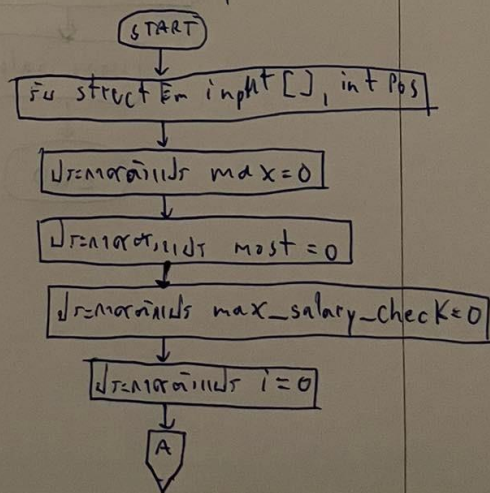 START
รับ struct Em input[], int Pos
ประกาศตัวแปร max=0
ประกาศตัวแปร most=0
ประกาศตัวแปร max_salary_check=0
ประกาศตัวแปร i=0
A